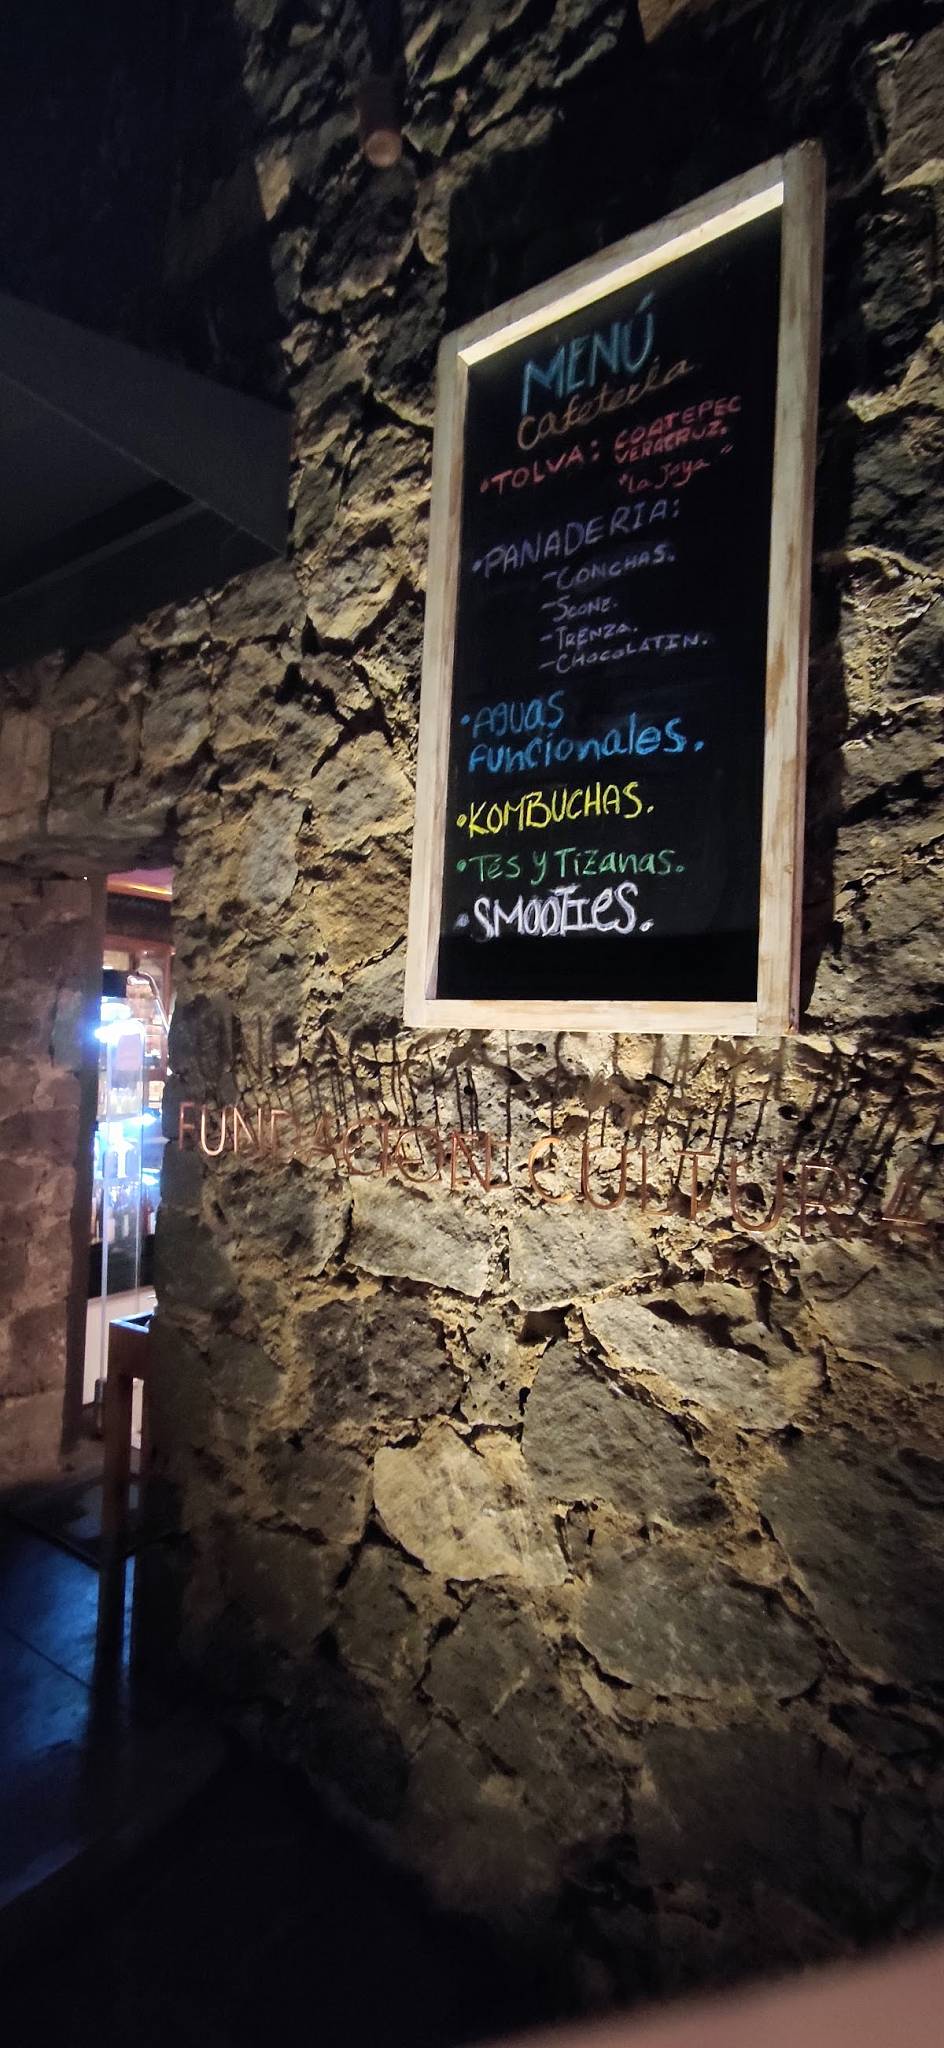 MENÚ
Cafetería
• TOLVA: COATEPEC
VERACRUZ.
"La Joya"
• PANADERIA:
- CONCHAS.
- Scone.
- TRENZA.
- CHOCOLATIN.
• Aguas
Funcionales.
• KOMBUCHAS.
• Tés y Tizanas.
• SMOOTIES.
FUNDACION CULTURA